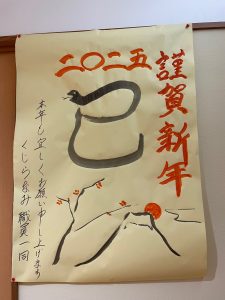 謹賀新年
二〇二五
巳
本年も宜しくお願い申し上げます
くじらなみ 職員一同